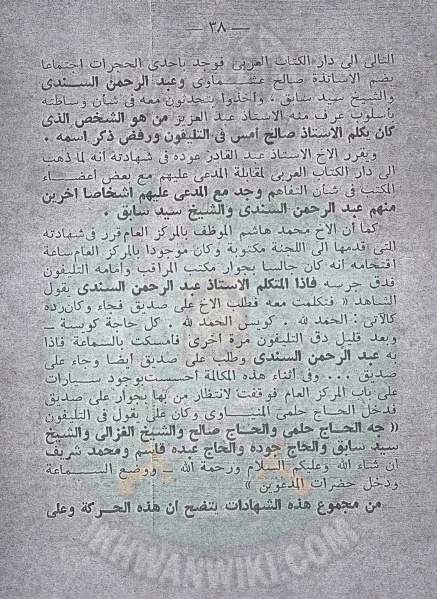 — ٣٨ —
التالى الى دار الكتاب العربى فوجد باحدى الحجرات اجتماعا
يضم الاساتذة صالح عشماوى وعبد الرحمن السندى
والشيخ سيد سابق ، وأخذوا يتحدثون معه فى شأن وساطته
بأسلوب عرف منه الاستاذ عبد العزيز من هو الشخص الذى
كان يكلم الاستاذ صالح أمس فى التليفون ورفض ذكر اسمه .
ويقرر الاخ الاستاذ عبد القادر عوده فى شهادته انه لما ذهب
الى دار الكتاب العربى لمقابلة المدعى عليهم مع بعض اعضاء
المكتب فى شأن التفاهم وجد مع المدعى عليهم اشخاصا آخرين
منهم عبد الرحمن السندى والشيخ سيد سابق .
كما أن الاخ محمد هاشم الموظف بالمركز العام قرر فى شهادته
التى قدمها الى اللجنة مكتوبة وكان موجودا بالمركز العام ساعة
اقتحامه أنه كان جالسا بجوار مكتب المراقب وأمامه التليفون
فدق جرسه فاذا المتكلم الاستاذ عبد الرحمن السندى يقول
الشاهد « فتكلمت معه فطلب الاخ على صديق فجاء وكان رده
كالآتى : الحمد لله . كويس الحمد لله . كل حاجة كويسة —
وبعد قليل دق التليفون مرة أخرى فأمسكت بالسماعة فاذا
به عبد الرحمن السندى وطلب على صديق أيضا وجاء على
صديق .... وفى أثناء هذه المكالمة أحسست بوجود سيارات
على باب المركز العام فوقفت لانتظار من بها بجوار على صديق
فدخل الحاج حلمى المنياوى وكان على يقول فى التليفون
(( جه الحاج حلمى والحاج صالح والشيخ الغزالى والشيخ
سيد سابق والحاج جوده والحاج عبده قاسم ومحمد شريف
ان شاء الله وعليكم السلام ورحمة الله — ووضع السماعة
ودخل حضرات المدعوين »
من مجموع هذه الشهادات يتضح ان هذه الحركة وعلى
IKHWANWIKI.COM